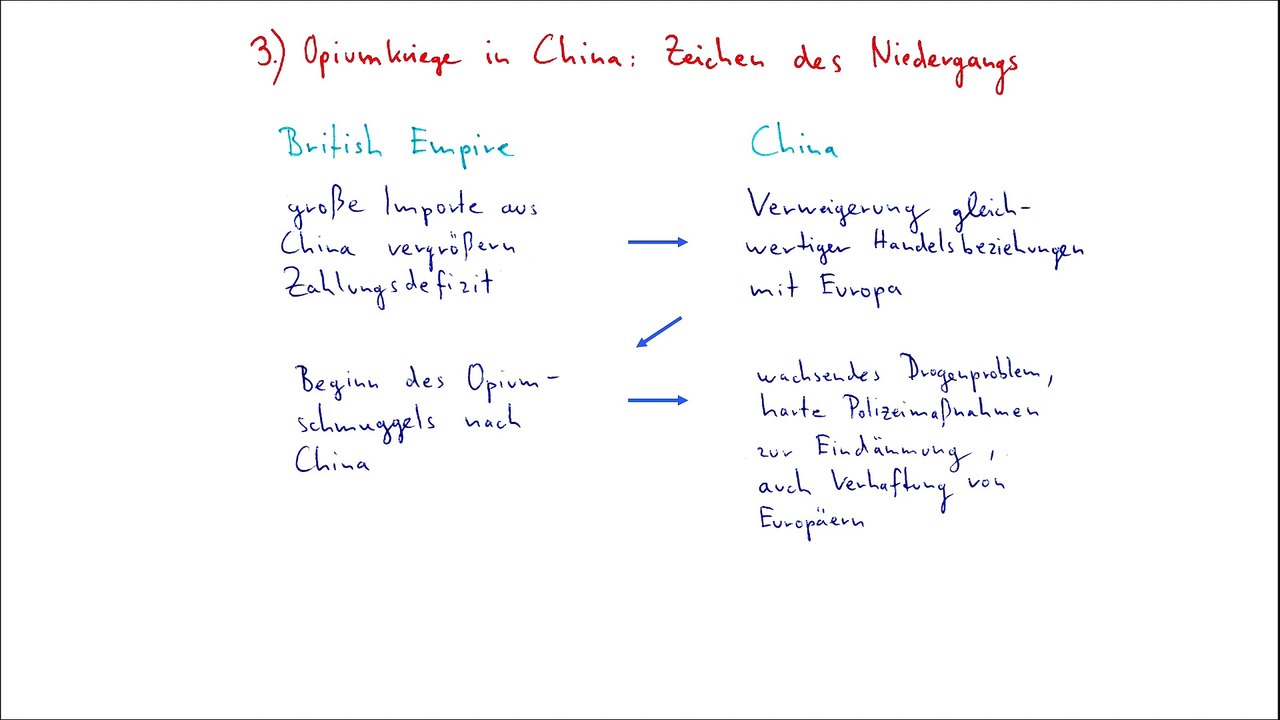 3.) Opiumkriege in China: Zeichen des Niedergangs
British Empire
große Importe aus
China vergrößern
Zahlungsdefizit
China
Verweigerung gleich-
wertiger Handelsbeziehungen
mit Europa
Beginn des Opium-
schmuggels nach
China
wachsendes Drogenproblem,
harte Polizeimaßnahmen
zur Eindämmung,
auch Verhaftung von
Europäern